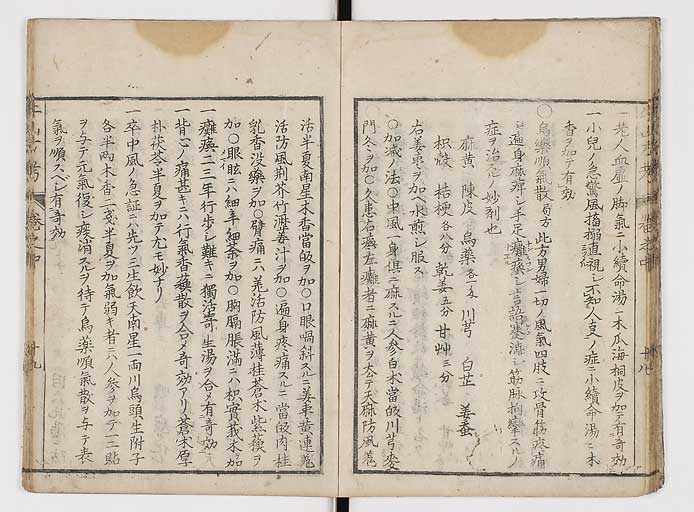 一老人血虚ノ脚氣ニ小續命湯ニ木瓜海桐皮ヲ加テ有奇効
一小兒ノ急驚風搐搦直視シ不知人事ノ症ニ小續命湯ニ木
香ヲ加テ有効
○烏藥順氣散 局方 此方男婦一切ノ風氣四肢ニ攻骨節疼痛
シ遍身麻痺シ手足癱瘓シ言語蹇澁シ筋脉拘攣スルノ
症ヲ治スルノ妙剤也
麻黄 陳皮 烏藥 各一戔 川芎 白芷 姜蚕
枳殻 桔梗 各八分 乾姜 五分 甘艸 三分
右姜棗ヲ加ヘ水煎シ服ス
○加减ノ法○中風一身倶ニ麻スルニ人参白朮當皈川芎麥
門冬ヲ加○久患右癱左瘓者ニ麻黄ヲ去テ天麻防風羌
活半夏南星木香當皈ヲ加○口眼喎斜スルニ姜炒黄連羌
活防風荆芥竹瀝姜汁ヲ加○遍身疼痛スルニ當皈肉桂
乳香没藥ヲ加○臂痛ニハ羌活防風薄桂蒼朮紫蘓ヲ
加○眼眩ニハ細辛細茶ヲ加○胸膈脹滿ニハ枳實莪朮加
一癱瘓二三年行歩シ難キニ獨活寄生湯ヲ合メ有奇効
一背心ノ痛甚キニハ行氣香蘓散ヲ合メ奇効アリ蒼朮厚
朴茯苓半夏ヲ加テ尤モ妙ナリ
一卒中風ノ急証ニハ先ツ三生飲天南星一両川烏頭生附子
各半両木香二戔半夏ヲ加氣弱キ者ニハ人参ヲ加テ一二貼
ヲ与テ元氣復シ痰消スルヲ待テ烏藥順氣散ヲ与テ表
氣ヲ順スベシ有奇効